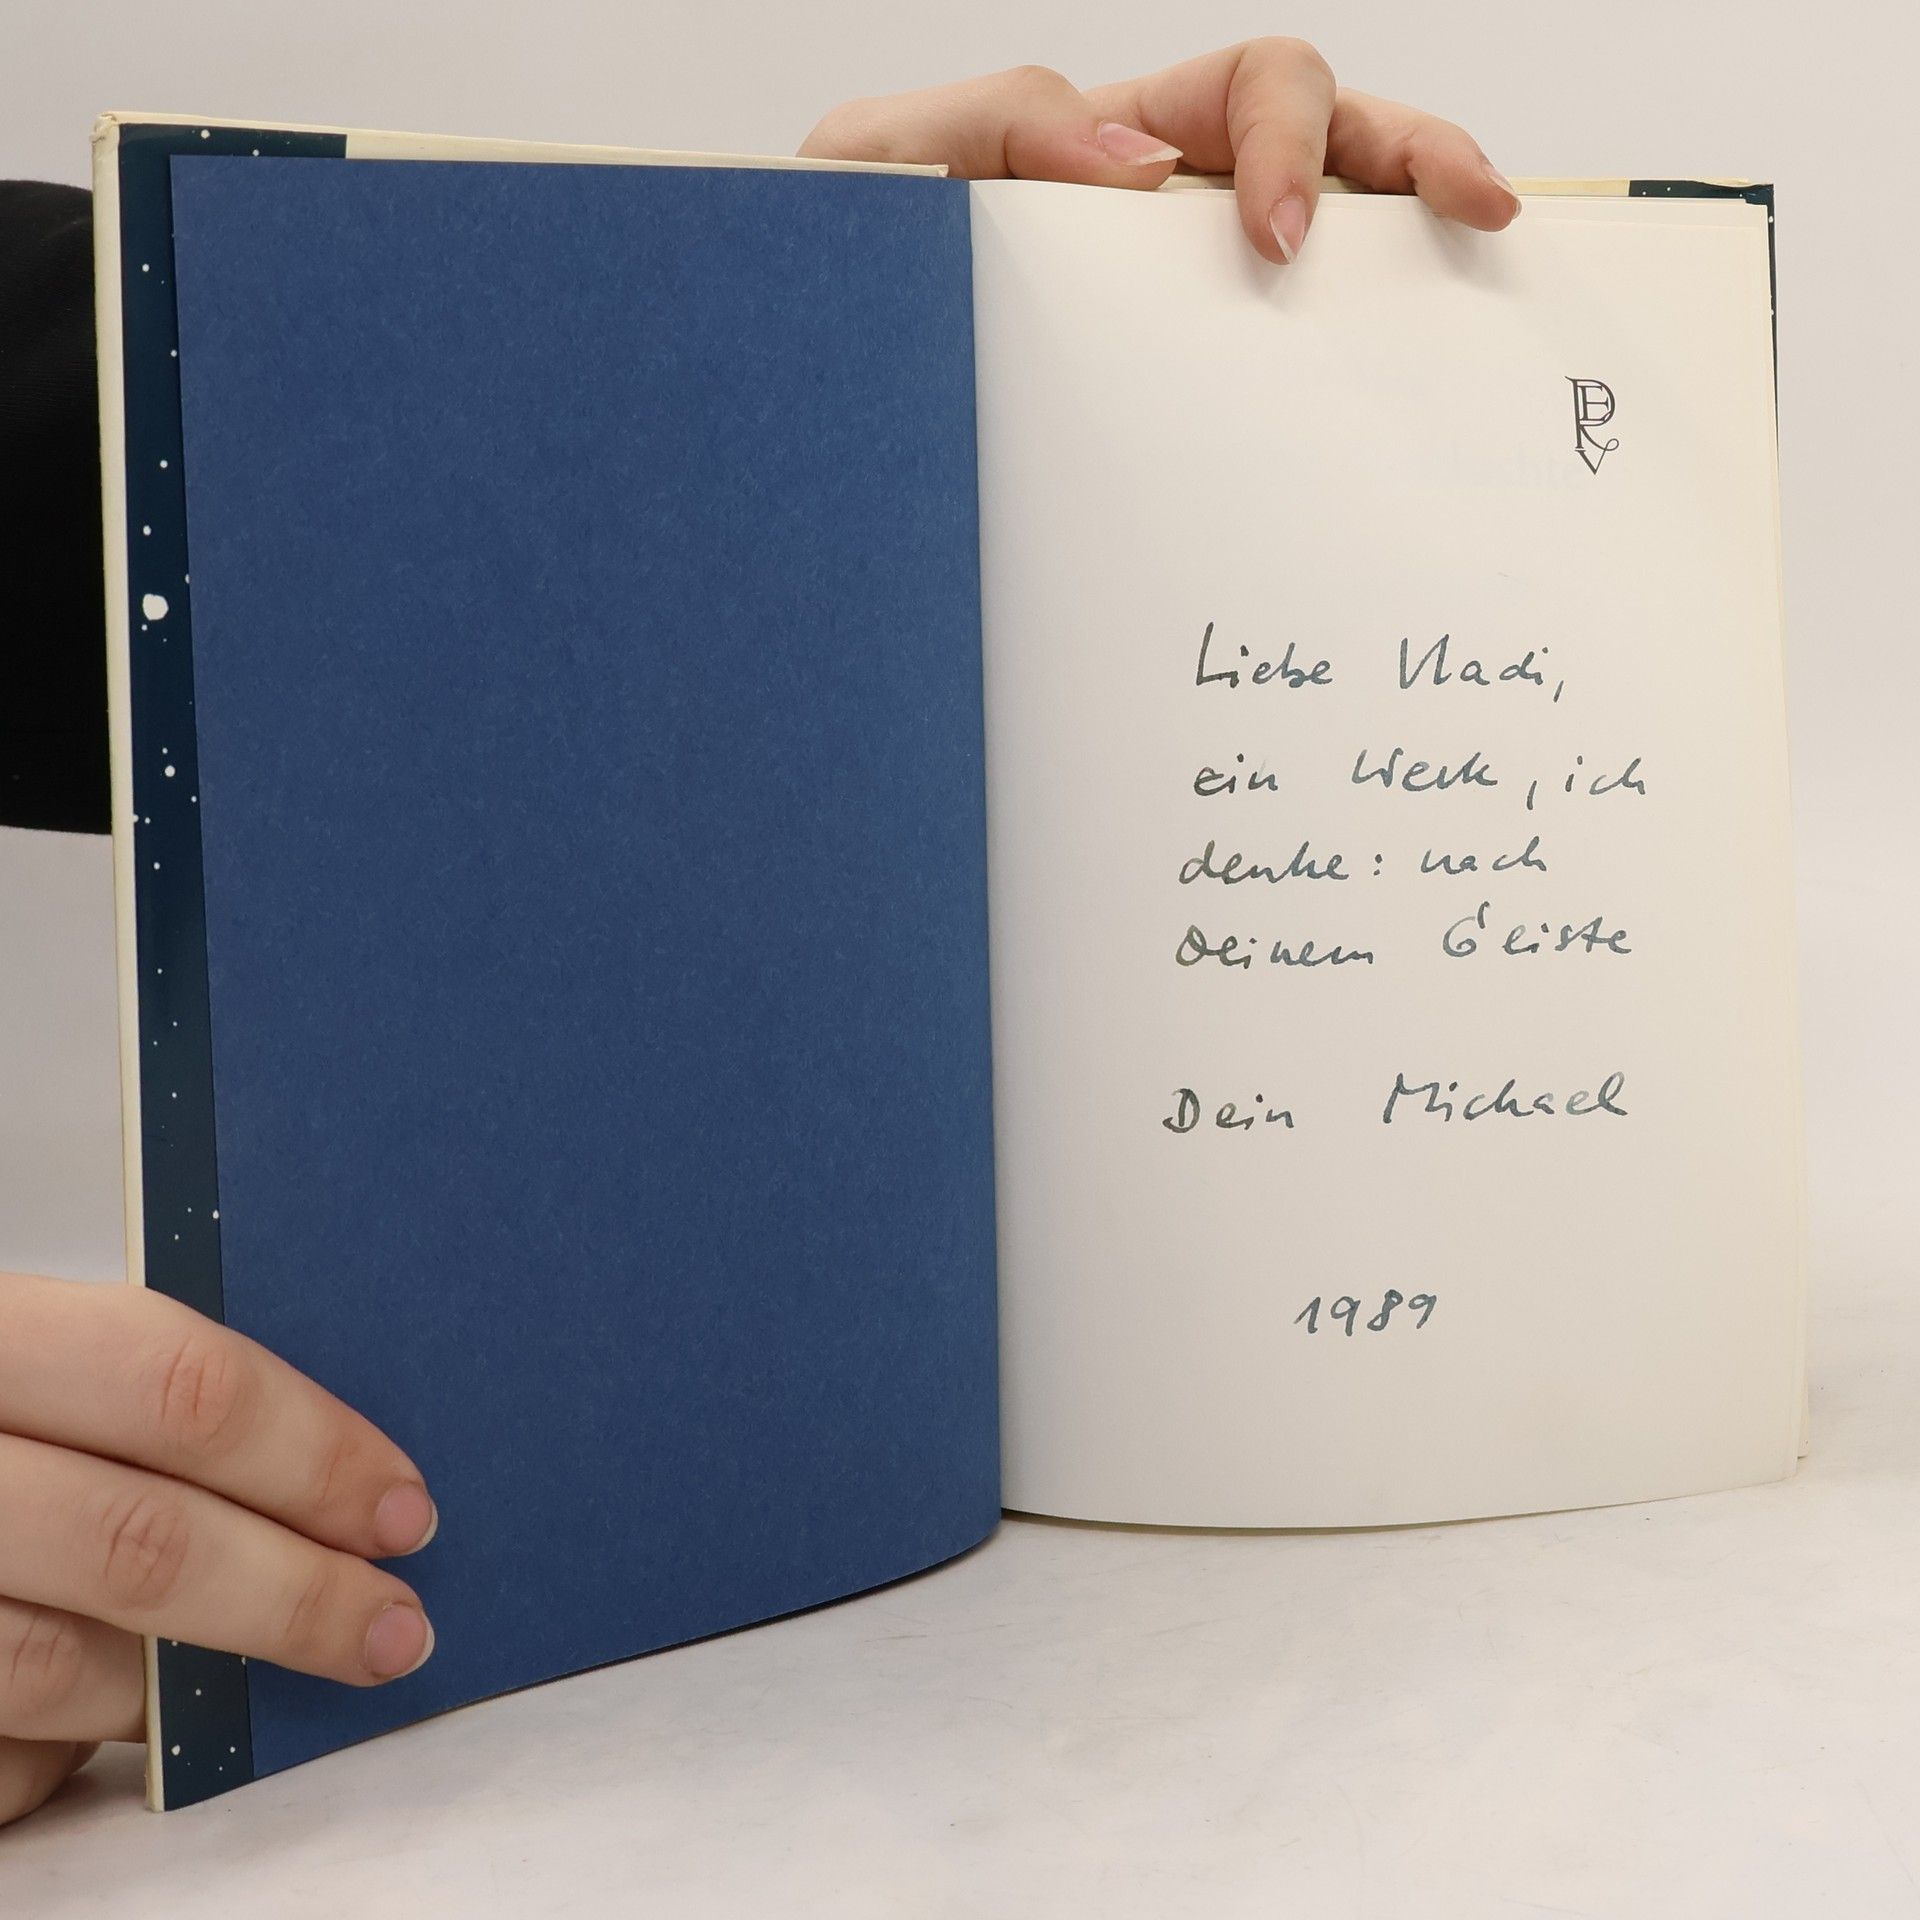 Liebe Vladi,
ein Werk, ich
denke: nach
Deinem Geiste
Dein Michael
1989